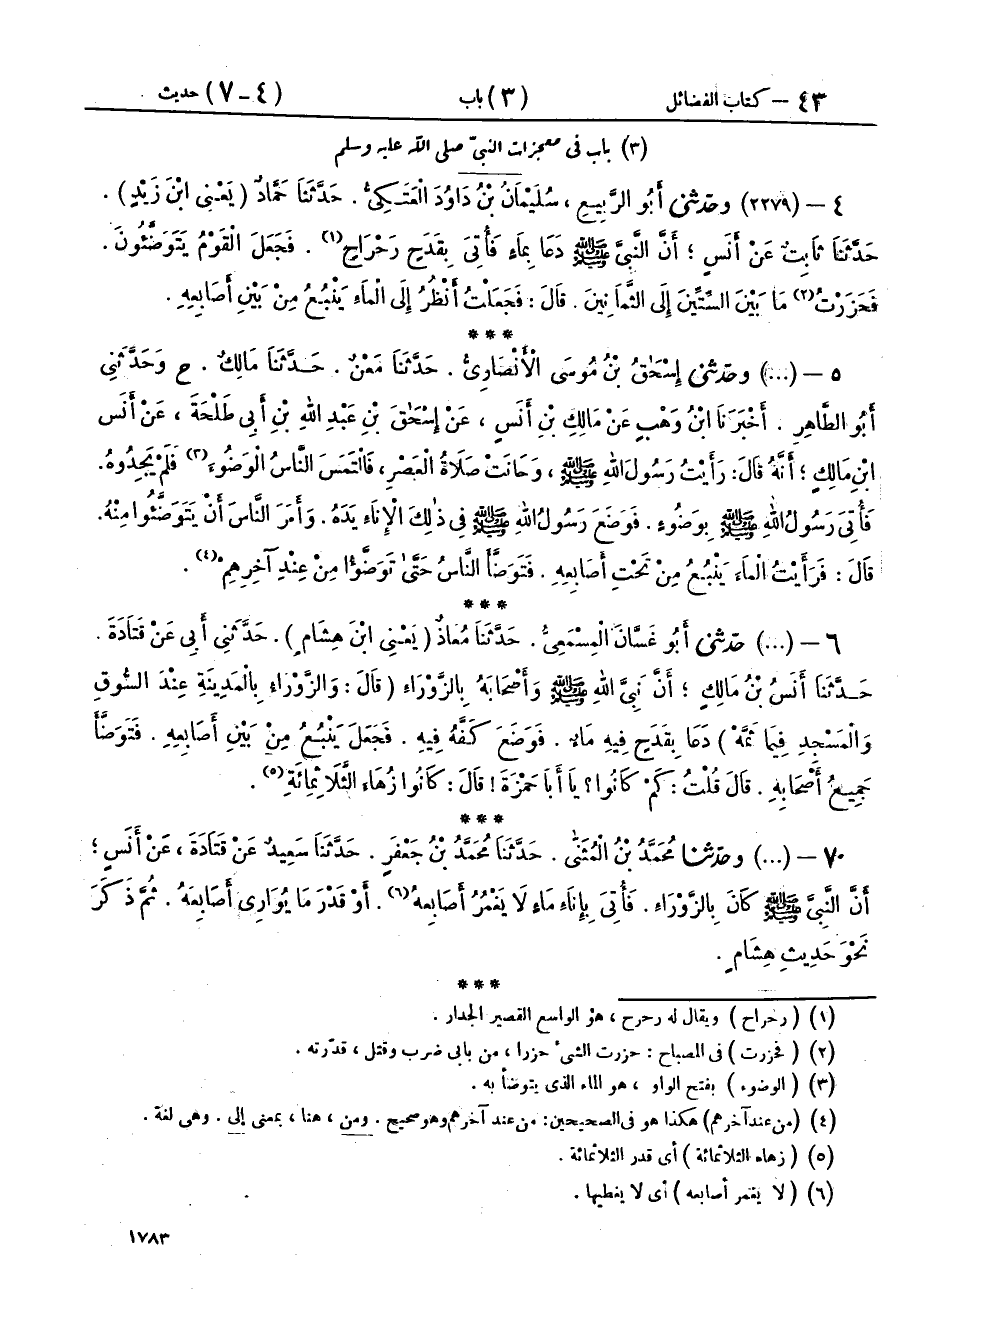 ٤٣ – كتاب الفضائل (٣) باب (٤ – ٧) حديث
(٣) باب في معجزات النبيّ صلى الله عليه وسلم
٤ – (٢٢٧٩) وحدثني أَبُو الرَّبِيعِ ، سُلَيْمَانُ بْنُ دَاوُدَ الْعَتَكِيُّ . حَدَّثَنَا حَمَّادٌ ( يَعْنِي ابْنَ زَيْدٍ ) .
حَدَّثَنَا ثَابِتٌ عَنْ أَنَسٍ ؛ أَنَّ النَّبِيَّ ﷺ دَعَا بِمَاءٍ فَأُتِيَ بِقَدَحٍ رَحْرَاحٍ(١) . فَجَعَلَ الْقَوْمُ يَتَوَضَّئُونَ .
فَحَزَرْتُ(٢) مَا بَيْنَ السِّتِّينَ إِلَى الثَّمَانِينَ . قَالَ : فَجَعَلْتُ أَنْظُرُ إِلَى الْمَاءِ يَنْبُعُ مِنْ بَيْنِ أَصَابِعِهِ .
* * *
٥ – (...) وحدثني إِسْحَٰقُ بْنُ مُوسَى الْأَنْصَارِيُّ . حَدَّثَنَا مَعْنٌ . حَدَّثَنَا مَالِكٌ . ح وَحَدَّثَنِي
أَبُو الطَّاهِرِ . أَخْبَرَنَا ابْنُ وَهْبٍ عَنْ مَالِكِ بْنِ أَنَسٍ ، عَنْ إِسْحَٰقَ بْنِ عَبْدِ اللهِ بْنِ أَبِي طَلْحَةَ ، عَنْ أَنَسِ
ابْنِ مَالِكٍ ؛ أَنَّهُ قَالَ : رَأَيْتُ رَسُولَ اللهِ ﷺ ، وَحَانَتْ صَلَاةُ الْعَصْرِ ، فَالْتَمَسَ النَّاسُ الْوَضُوءَ(٣) فَلَمْ يَجِدُوهُ .
فَأُتِيَ رَسُولُ اللهِ ﷺ بِوَضُوءٍ . فَوَضَعَ رَسُولُ اللهِ ﷺ فِي ذَٰلِكَ الْإِنَاءِ يَدَهُ . وَأَمَرَ النَّاسَ أَنْ يَتَوَضَّئُوا مِنْهُ .
قَالَ : فَرَأَيْتُ الْمَاءَ يَنْبُعُ مِنْ تَحْتِ أَصَابِعِهِ . فَتَوَضَّأَ النَّاسُ حَتَّىٰ تَوَضَّؤُا مِنْ عِنْدِ آخِرِهِمْ(٤) .
* * *
٦ – (...) حدثني أَبُو غَسَّانَ الْمِسْمَعِيُّ . حَدَّثَنَا مُعَاذٌ ( يَعْنِي ابْنَ هِشَامٍ ) . حَدَّثَنِي أَبِي عَنْ قَتَادَةَ .
حَدَّثَنَا أَنَسُ بْنُ مَالِكٍ ؛ أَنَّ نَبِيَّ اللهِ ﷺ وَأَصْحَابَهُ بِالزَّوْرَاءِ ( قَالَ : وَالزَّوْرَاءِ بِالْمَدِينَةِ عِنْدَ السُّوقِ
وَالْمَسْجِدِ فِيمَا ثَمَّهْ ) دَعَا بِقَدَحٍ فِيهِ مَاءٌ . فَوَضَعَ كَفَّهُ فِيهِ . فَجَعَلَ يَنْبُعُ مِنْ بَيْنِ أَصَابِعِهِ . فَتَوَضَّأَ
جَمِيعُ أَصْحَابِهِ . قَالَ قُلْتُ : كَمْ كَانُوا ؟ يَا أَبَا حَمْزَةَ ! قَالَ : كَانُوا زُهَاءَ الثَّلَاثِمِائَةِ(٥) .
* * *
٧ – (...) وحدثنا مُحَمَّدُ بْنُ الْمُثَنَّى . حَدَّثَنَا مُحَمَّدُ بْنُ جَعْفَرٍ . حَدَّثَنَا سَعِيدٌ عَنْ قَتَادَةَ ، عَنْ أَنَسٍ ؛
أَنَّ النَّبِيَّ ﷺ كَانَ بِالزَّوْرَاءِ . فَأُتِيَ بِإِنَاءِ مَاءٍ لَا يَغْمُرُ أَصَابِعَهُ(٦) . أَوْ قَدْرَ مَا يُوَارِي أَصَابِعَهُ . ثُمَّ ذَكَرَ
نَحْوَ حَدِيثِ هِشَامٍ .
* * *
(١) ( رحراح ) ويقال له رحرح ، هو الواسع القصير الجدار .
(٢) ( فحزرت ) في المصباح : حزرت الشيء حزرا ، من بابي ضرب وقتل ، قدّرته .
(٣) ( الوضوء ) بفتح الواو ، هو الماء الذي يتوضأ به .
(٤) ( من عند آخرهم ) هكذا هو في الصحيحين : من عند آخرهم وهو صحيح . ومن ، هنا ، بمعنى إلى . وهي لغة .
(٥) ( زهاء الثلاثمائة ) أي قدر الثلاثمائة .
(٦) ( لا يغمر أصابعه ) أي لا يغطيها .
١٧٨٣